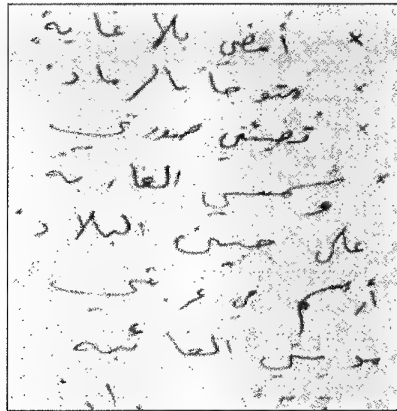 × أمضي بلا غاية.
× متوجا بالرماد.
× تصيئني صورتي
× شمسي الغاربة
على جبين البلاد.
أرسم في غرفتي
مدينتي الغائبه